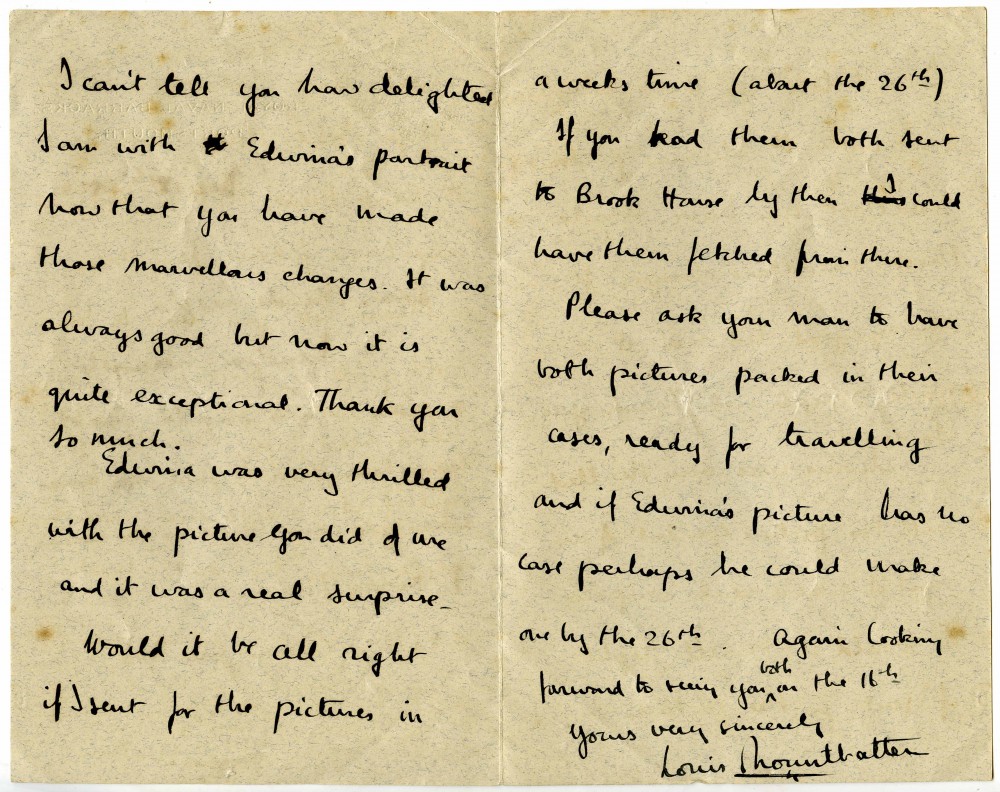 I can't tell you how delighted
I am with Edwina's portrait
now that you have made
those marvellous changes. It was
always good but now it is
quite exceptional. Thank you
so much.
Edwina was very thrilled
with the picture you did of me
and it was a real surprise_
Would it be all right
if I sent for the pictures in
a weeks time (about the 26th)
If you had them both sent
to Brook House by then I could
have them fetched from there.
Please ask your man to have
both pictures packed in their
cases, ready for travelling
and if Edwina's picture has no
case perhaps he could make
one by the 26th. Again looking
forward to seeing you both on the 16th
yours very sincerely
Louis Mountbatten